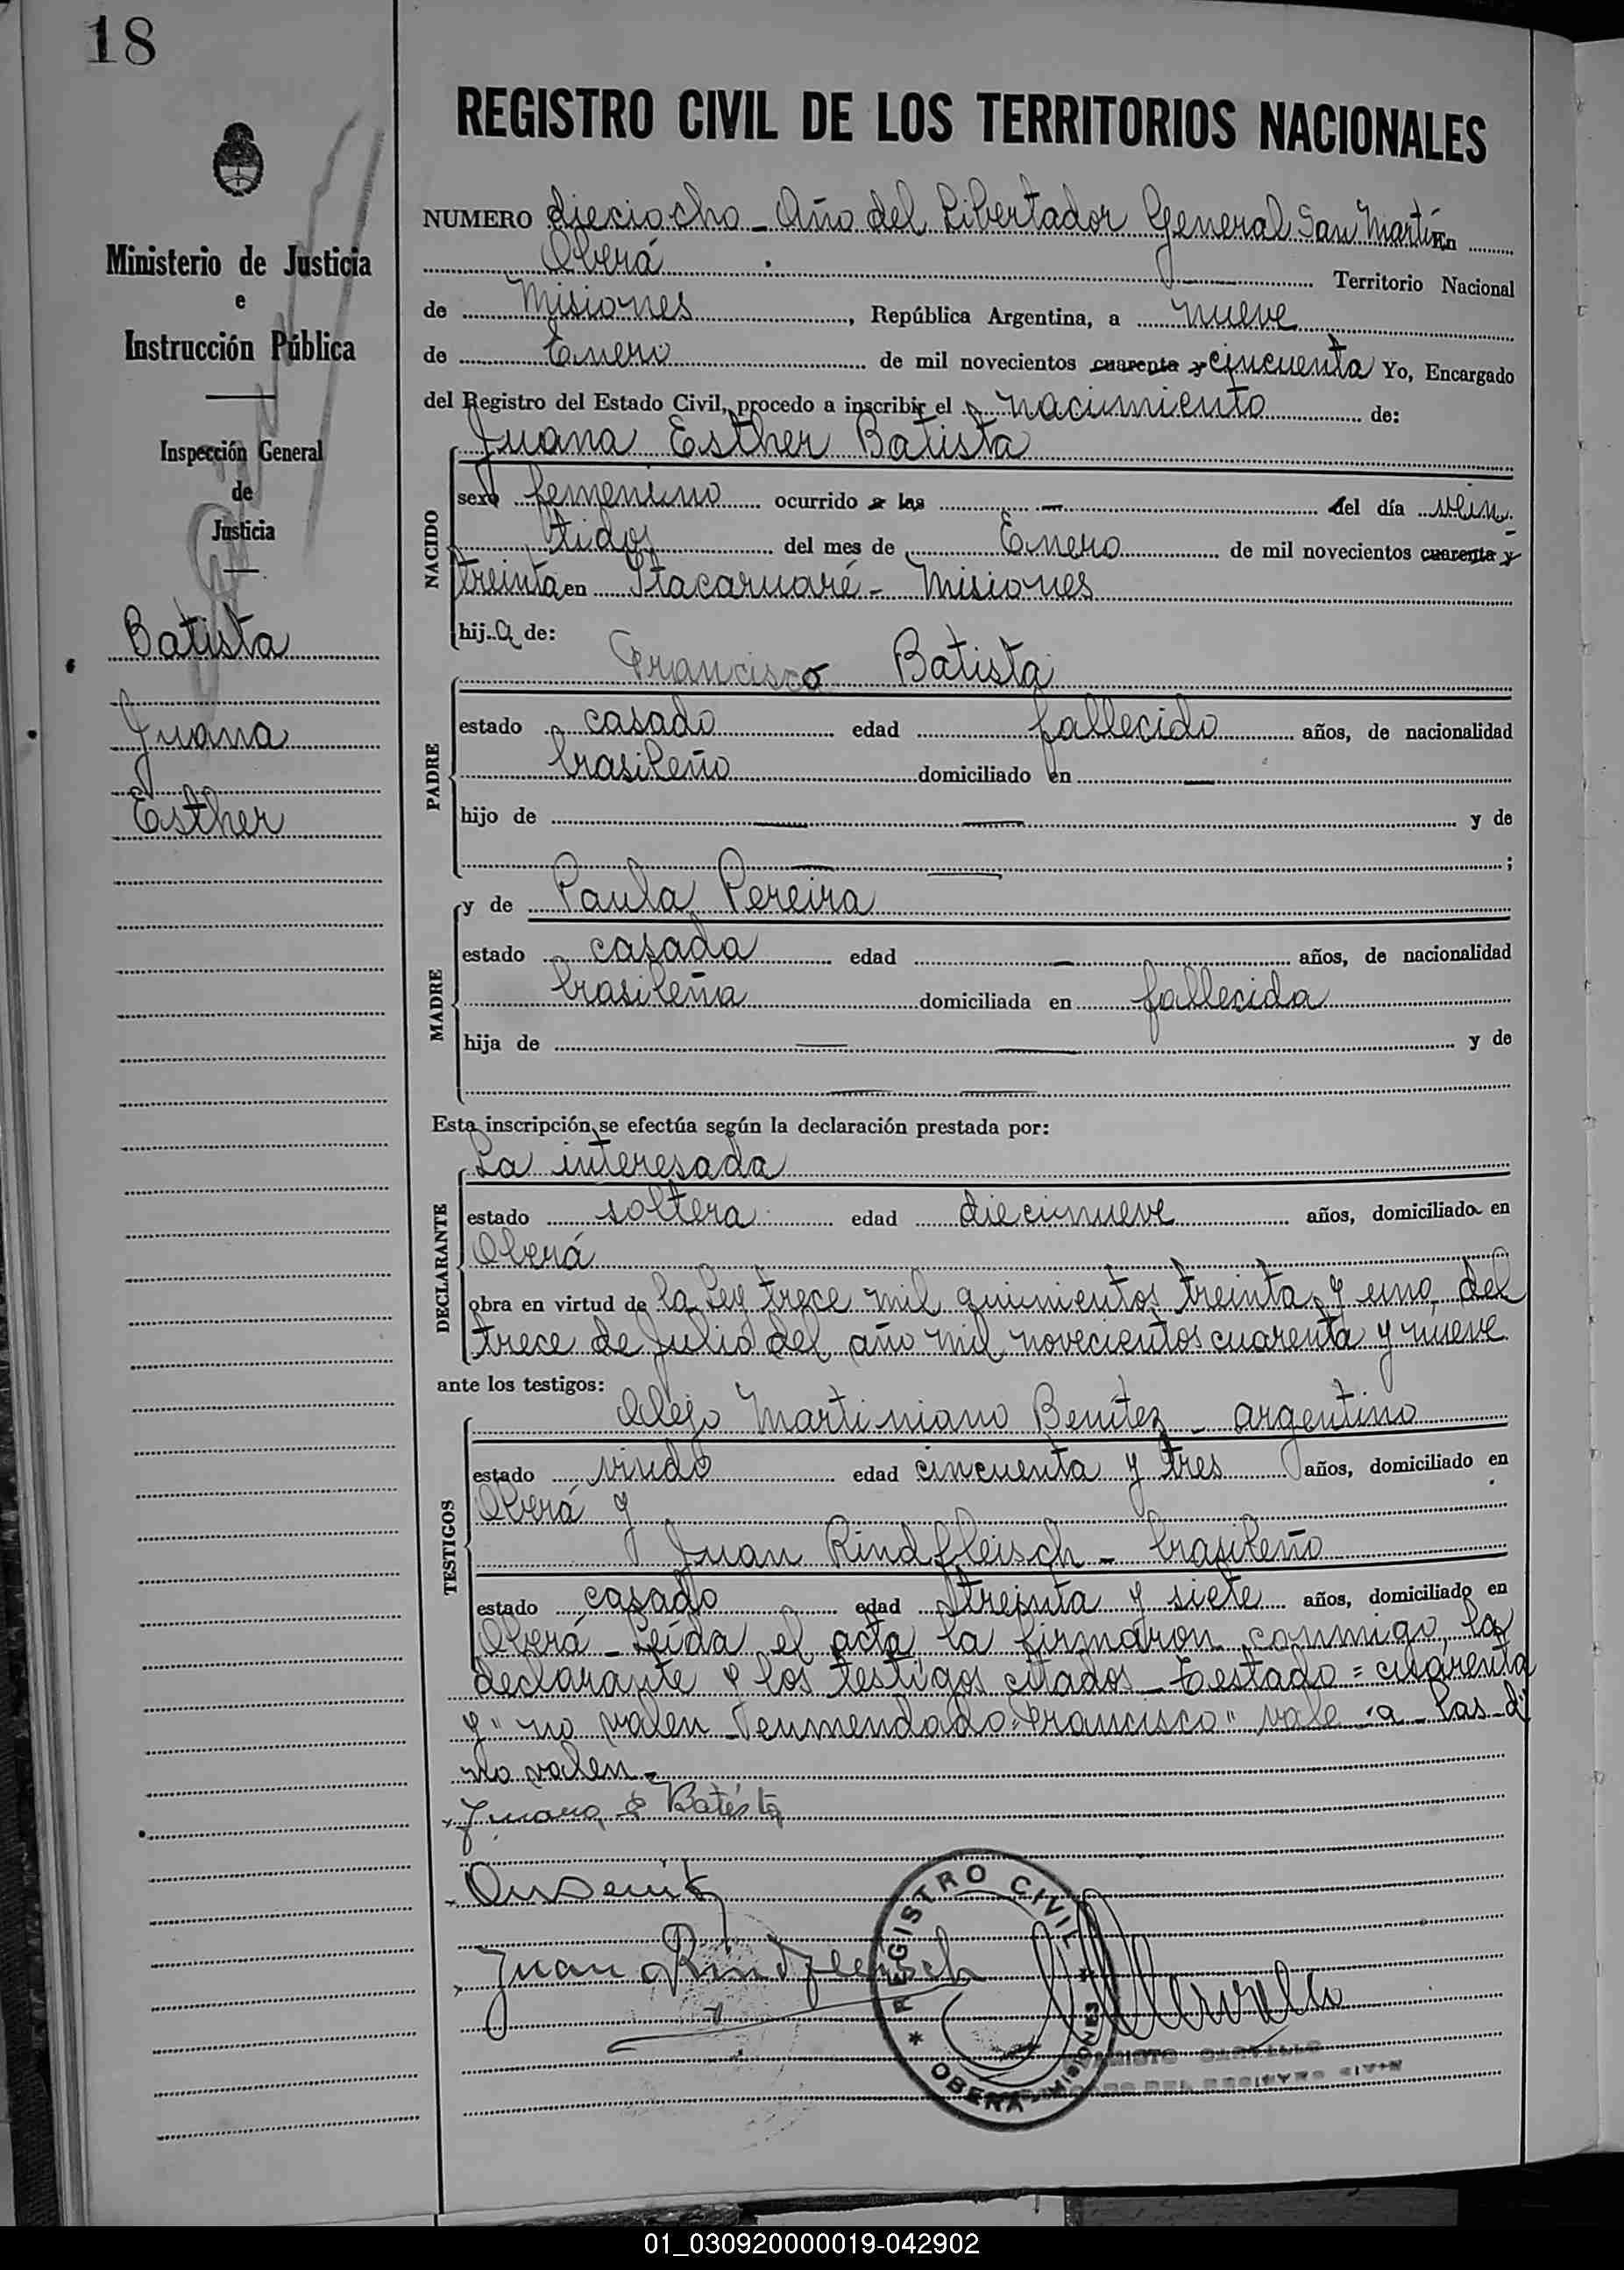 18
REGISTRO CIVIL DE LOS TERRITORIOS NACIONALES
Ministerio de Justicia
e
Instrucción Pública
Inspección General
de
Justicia
Batista
Juana
Esther
NUMERO dieciocho - Año del Libertador General San Martín En
Oberá Territorio Nacional
de Misiones, República Argentina, a nueve
de Enero de mil novecientos cuarenta y cincuenta Yo, Encargado
del Registro del Estado Civil, procedo a inscribir el nacimiento de:
Juana Esther Batista
NACIDO
sexo femenino ocurrido a las - del día vein
tidos del mes de Enero de mil novecientos cuarenta y
treinta en Itacaruaré - Misiones
hija de:
Francisco Batista
PADRE
estado casado edad fallecido años, de nacionalidad
brasileño domiciliado en —
hijo de — — y de
— — ;
y de Paula Pereira
MADRE
estado casada edad — años, de nacionalidad
brasileña domiciliada en fallecida
hija de — — y de
— —
Esta inscripción se efectúa según la declaración prestada por:
La interesada
DECLARANTE
estado soltera edad diecinueve años, domiciliada en
Oberá
obra en virtud de la Ley trece mil quinientos treinta y uno, del
trece de Julio del año mil novecientos cuarenta y nueve
ante los testigos:
Alejo Martiniano Benitez - argentino
TESTIGOS
estado viudo edad cincuenta y tres años, domiciliado en
Oberá y
Juan Rindfleisch - brasileño
estado casado edad treinta y siete años, domiciliado en
Oberá - Leída el acta la firmaron conmigo, la
declarante y los testigos citados - Testado = cuarenta
y" no valen - enmendado "Francisco" vale - a - las - d"
no valen -
Juana E Batista
Juan Rindfleisch
REGISTRO CIVIL
* OBERÁ - MISIONES *
CASTILLO
DEL REGISTRO CIVIL
01_030920000019-042902